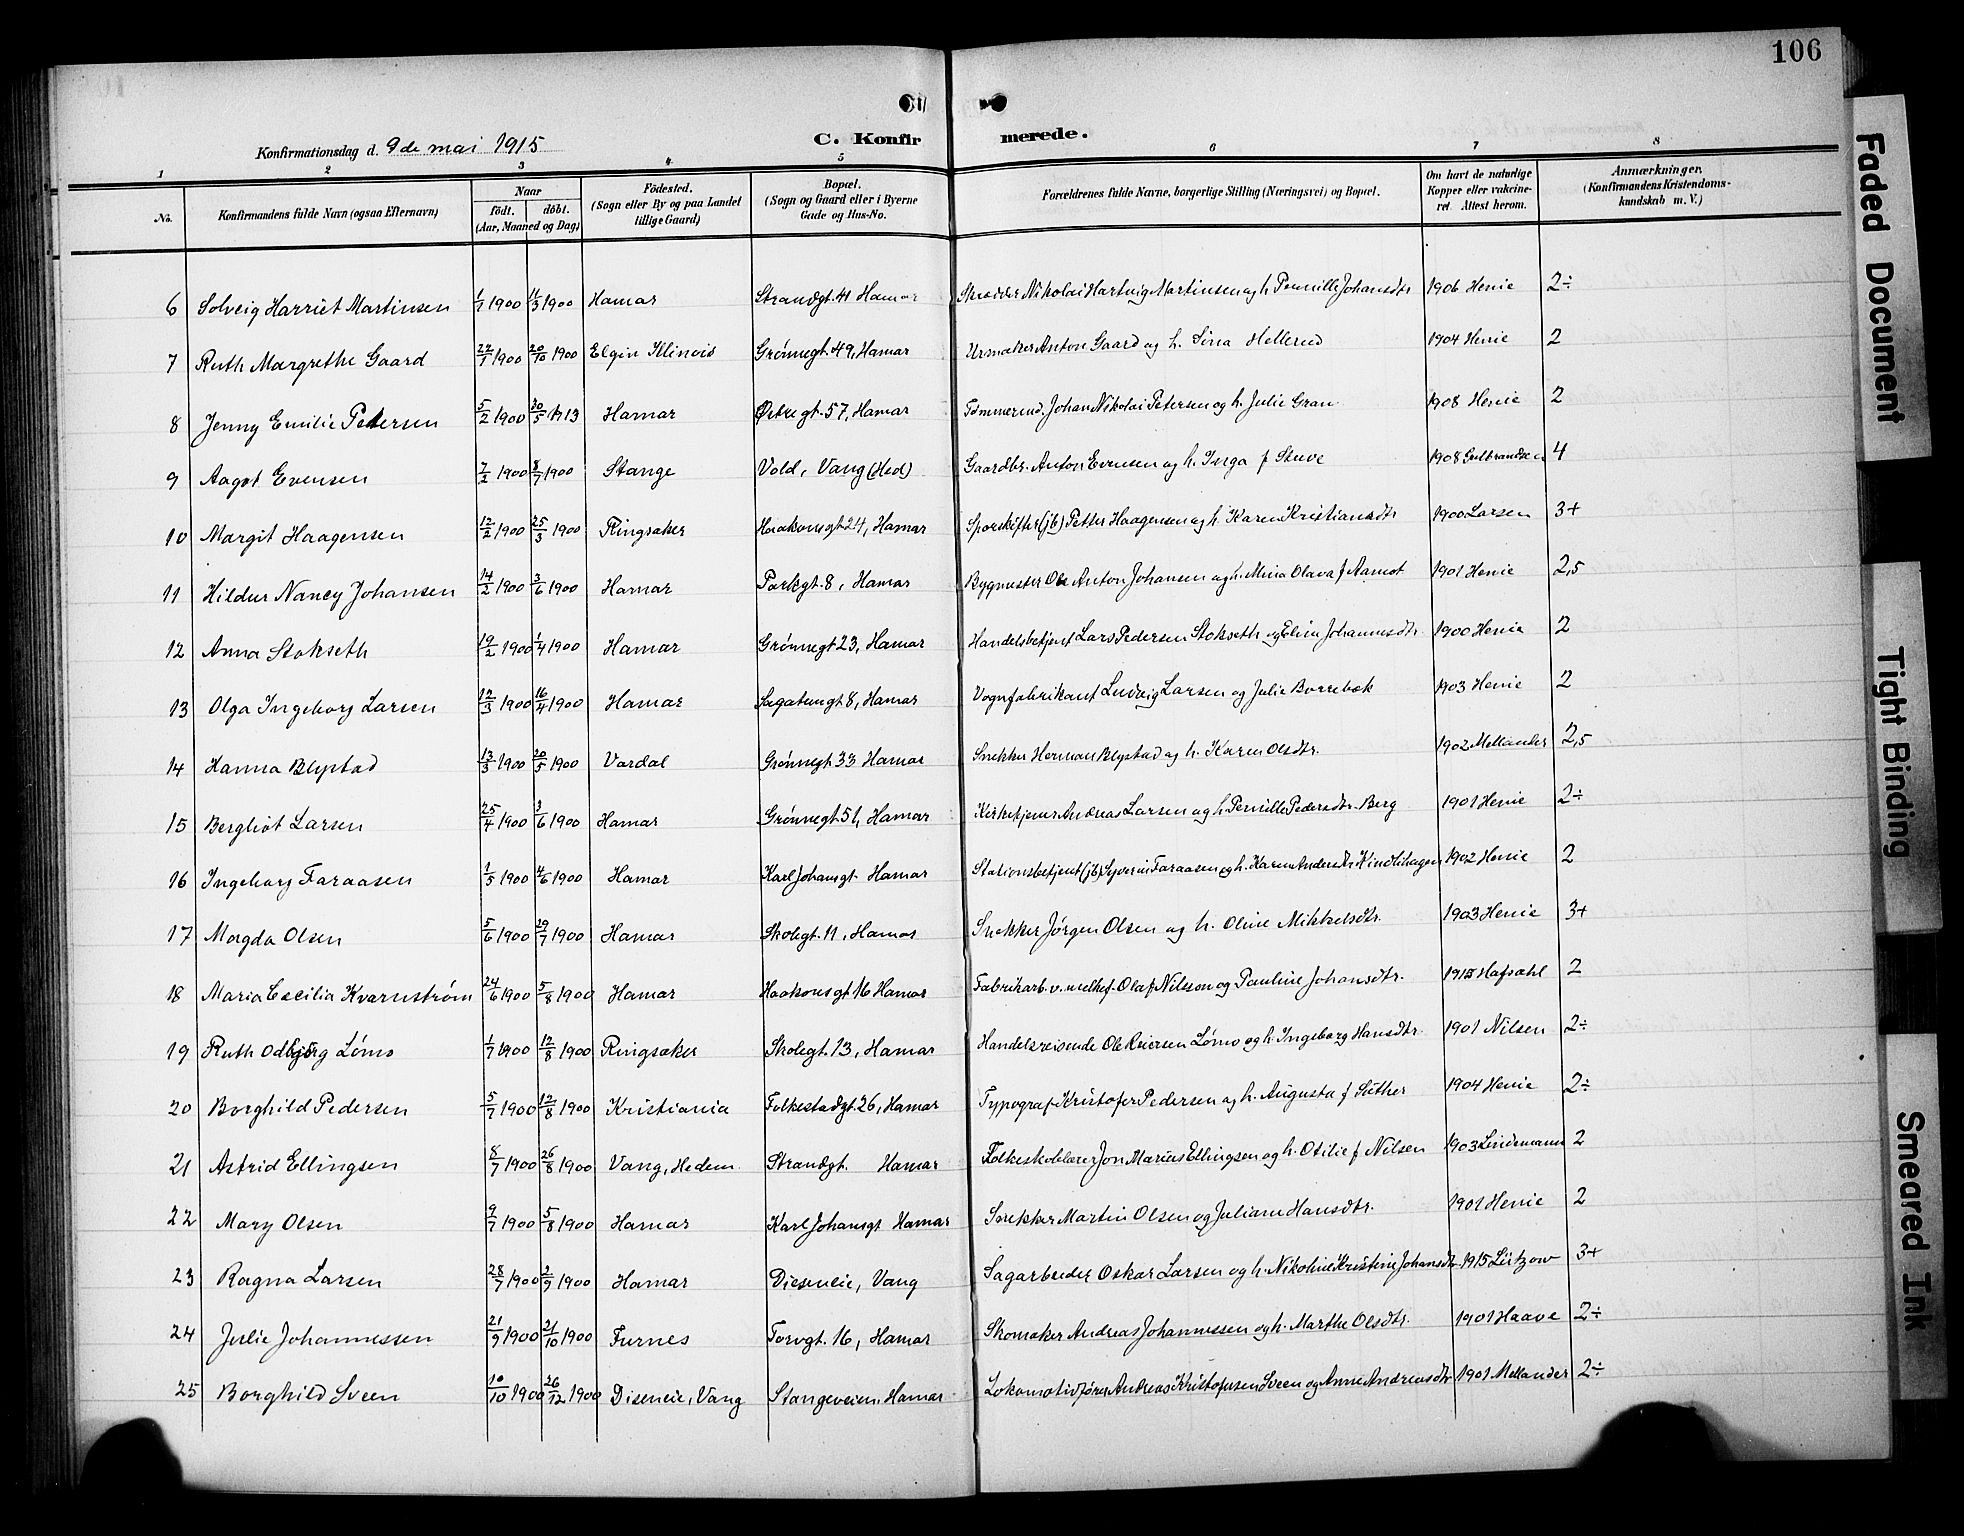 106
Konfirmationsdag d. 9de mai 1915
C. Konfirmerede.
1 2 3 4 5 6 7 8
No. Konfirmandens fulde Navn (ogsaa Efternavn) Naar födt. döbt. (Aar, Maaned og Dag) Födested. (Sogn eller By og paa Landet tillige Gaard) Bopæl. (Sogn og Gaard eller i Byerne Gade og Hus-No. Forældrenes fulde Navne, borgerlige Stilling (Næringsvei) og Bopæl. Om havt de naturlige Kopper eller vakcineret. Attest herom. Anmærkninger. (Konfirmandens Kristendomskundskab m. V.)
6 Solveig Harriet Martinsen 1/1 1900 11/3 1900 Hamar Strandgt. 41 Hamar Skrædder Nikolai Hartvig Martinsen og h. Pernille Johansdtr 1906 Henie 2÷
7 Ruth Margrethe Gaard 22/1 1900 20/10 1900 Elgin Illinois Grønnegt. 49, Hamar Urmaker Anton Gaard og h. Sina Hellerud 1904 Henie 2
8 Jenny Emilie Petersen 5/2 1900 20/5 1913 Hamar Østregt. 57, Hamar Tømmermd. Johan Nikolai Petersen og h. Julie Gran 1908 Henie 2
9 Aagot Evensen 7/2 1900 8/7 1900 Stange Vold, Vang (Hed) Gaardbr. Anton Evensen og h. Inga f Stuve 1908 Gulbrandsen 4
10 Margit Haagensen 12/2 1900 25/3 1900 Ringsaker Haakonsgt 24, Hamar Sporskifter (jb) Petter Haagensen og h. Karen Kristiansdtr 1900 Larsen 3+
11 Hildur Nancy Johansen 14/2 1900 3/6 1900 Hamar Parkgt. 8, Hamar Bygmester Ole Anton Johansen og h. Mina Olava f Aamot 1901 Henie 2,5
12 Anna Stokseth 19/2 1900 1/4 1900 Hamar Grønnegt 23, Hamar Handelsbetjent Lars Pedersen Stokseth og Eline Johannesdtr 1900 Henie 2
13 Olga Ingeborg Larsen 12/3 1900 16/4 1900 Hamar Sagatungt 8, Hamar Vognfabrikant Ludvig Larsen og Julie Borrebæk 1903 Henie 2
14 Hanna Blystad 13/3 1900 20/5 1900 Vardal Grønnegt. 33 Hamar Snekker Herman Blystad og h. Karen Olsdtr. 1902 Mellander 2,5
15 Bergliot Larsen 25/4 1900 3/6 1900 Hamar Grønnegt 51, Hamar Kirketjener Andreas Larsen og h. Pernille Pedersdtr. Berg 1901 Henie 2÷
16 Ingeborg Faraasen 1/5 1900 4/6 1900 Hamar Karl Johansgt. Hamar Stationsbetjent (jb) Syverin Faraasen og h. Karen Andersdtr Kindlihagen 1902 Henie 2
17 Magda Olsen 5/6 1900 29/7 1900 Hamar Skolegt. 11, Hamar Snekker Jørgen Olsen og h. Oline Mikkelsdtr. 1903 Henie 3+
18 Maria Cecilia Kvarnstrøm 24/6 1900 5/8 1900 Hamar Haakonsgt 16 Hamar Fabrikarb. v. melkef. Olaf Nilsson og Pauline Johansdtr. 1915 Hafsahl 2
19 Ruth Odbjørg Lømo 1/7 1900 12/8 1900 Ringsaker Skolegt. 13, Hamar Handelsreisende Ole Reiersen Lømo og h. Ingeborg Hansdtr. 1901 Nilsen 2÷
20 Borghild Pedersen 5/7 1900 12/8 1900 Kristiania Folkestadgt. 26, Hamar Typograf Kristofer Pedersen og h. Augusta f Sæther 1904 Henie 2÷
21 Astrid Ellingsen 8/7 1900 26/8 1900 Vang, Hedem. Strandgt. Hamar Folkeskolelærer Jon Marius Ellingsen og h. Otilie f Nilsen 1903 Lindemann 2
22 Mary Olsen 9/7 1900 5/8 1900 Hamar Karl Johansgt Hamar Snekker Martin Olsen og Juliane Hansdtr. 1901 Henie 2
23 Ragna Larsen 28/7 1900 2/9 1900 Hamar Diseneie, Vang Sagarbeder Oskar Larsen og h. Nikoline Kristine Johansdtr 1915 Lützow 3+
24 Julie Johannessen 21/9 1900 21/10 1900 Furnes Torvgt. 16, Hamar Skomaker Andreas Johannessen og h. Marthe Olsdtr. 1901 Haave 2÷
25 Borghild Sveen 10/10 1900 26/12 1900 Diseneie, Vang Stangeveien, Hamar Lokomotivfører Andreas Kristofersen Sveen og Anne Andreasdtr 1901 Mellander 2÷
Faded Document
Tight Binding
Smeared Ink